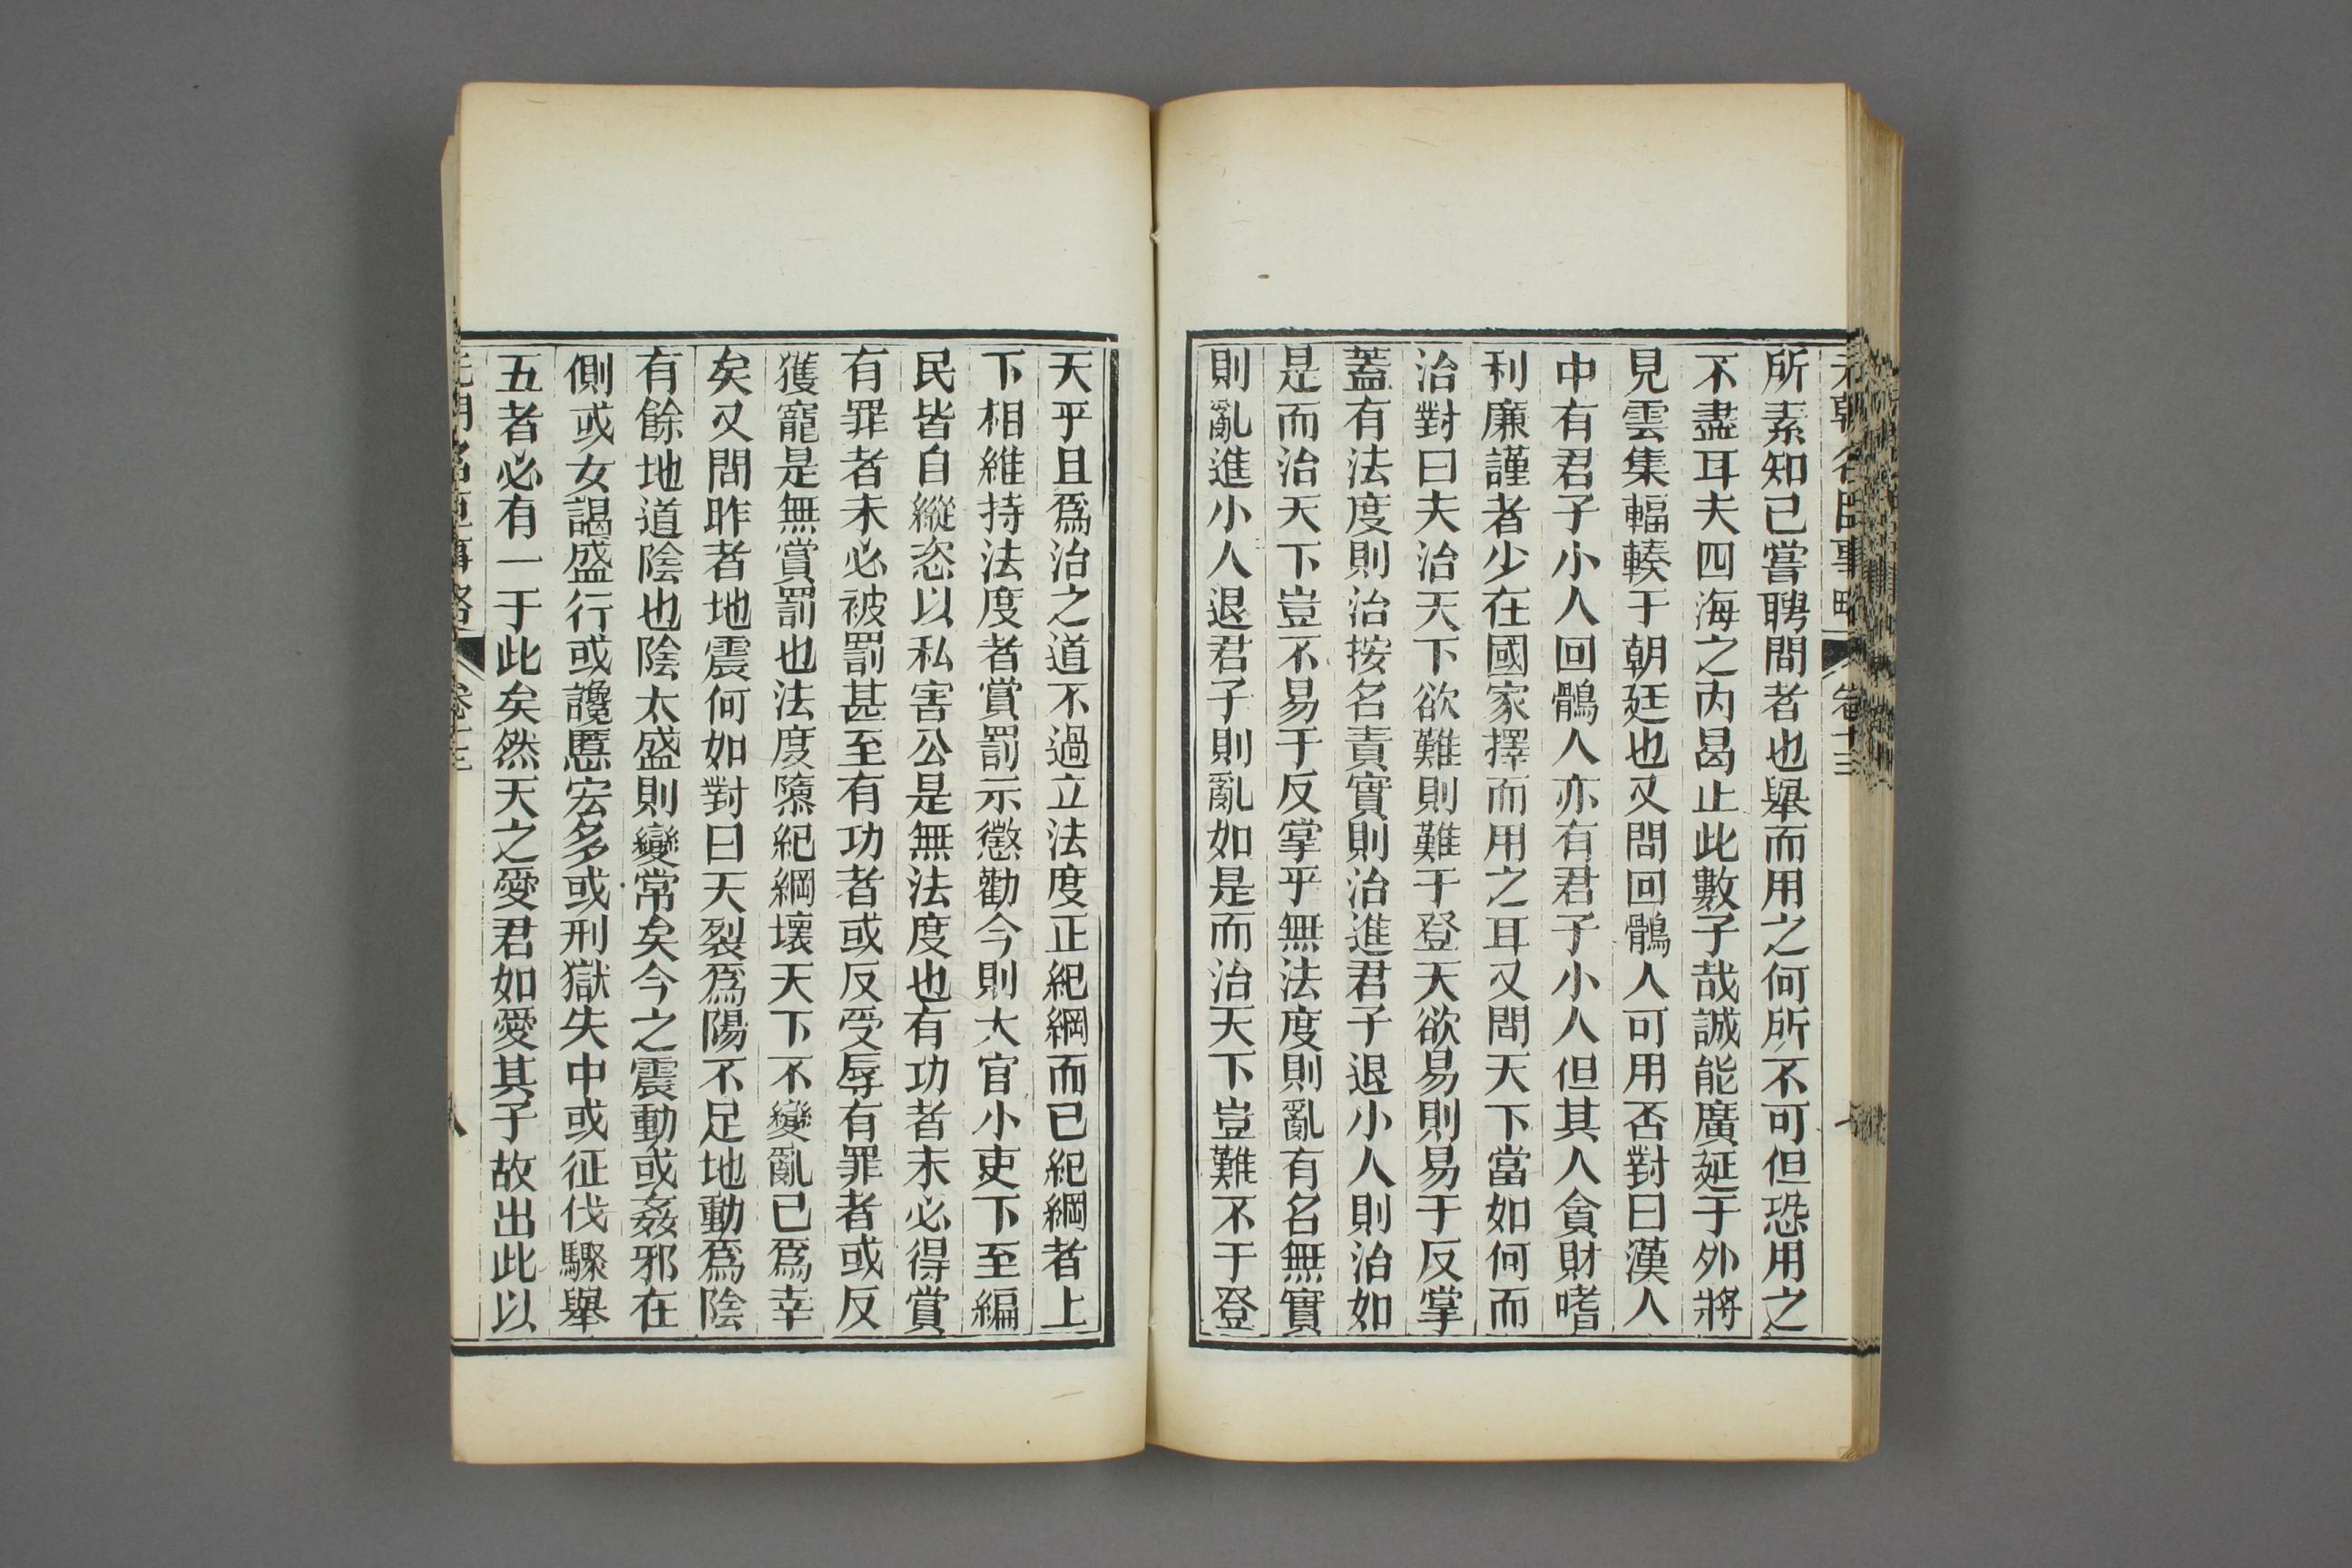 元朝名臣事略 卷十三 七
所素知已嘗聘問者也舉而用之何所不可但恐用之
不盡耳夫四海之內曷止此數子哉誠能廣延于外將
見雲集輻輳于朝廷也又問回鶻人可用否對曰漢人
中有君子小人回鶻人亦有君子小人但其人貪財嗜
利廉謹者少在國家擇而用之耳又問天下當如何而
治對曰夫治天下欲難則難于登天欲易則易于反掌
蓋有法度則治按名責實則治進君子退小人則治如
是而治天下豈不易于反掌乎無法度則亂有名無實
則亂進小人退君子則亂如是而治天下豈難不于登
天乎且爲治之道不過立法度正紀綱而已紀綱者上
下相維持法度者賞罰示懲勸今則大官小吏下至編
民皆自縱恣以私害公是無法度也有功者未必得賞
有罪者未必被罰甚至有功者或反受辱有罪者或反
獲寵是無賞罰也法度隳紀綱壞天下不變亂已爲幸
矣又問昨者地震何如對曰天裂爲陽不足地動爲陰
有餘地道陰也陰太盛則變常矣今之震動或姦邪在
側或女謁盛行或讒慝宏多或刑獄失中或征伐驟舉
五者必有一于此矣然天之愛君如愛其子故出此以
元朝名臣事略 卷十三 八